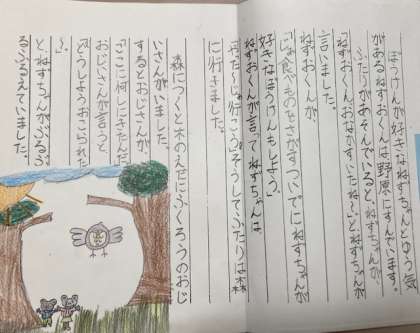 ぼうけんが好きなねずちゃんとゆう気
があるねずおくんは野原にすんでいます。
ふたりがあそんでいると、ねずちゃんが
「ねずおくんおなかすいたね」とねずちゃんが
言いました。
ねずおくんが、
「じゃ食べものをさがすついでにねずちゃんが
好きなぼうけんもしよう」
ねずおくんが言ってねずちゃんは、
「行こう」そうしてふたりは森
に行きました。
森につくと木のえだにふくろうのおじ
いさんがいました。
するとおじさんが、
「ここに何しにきたんだ
おじいさんが言うと、
「どうしようおこられた
〜」
と、ねずちゃんがぶるぶ
るふるえていました。